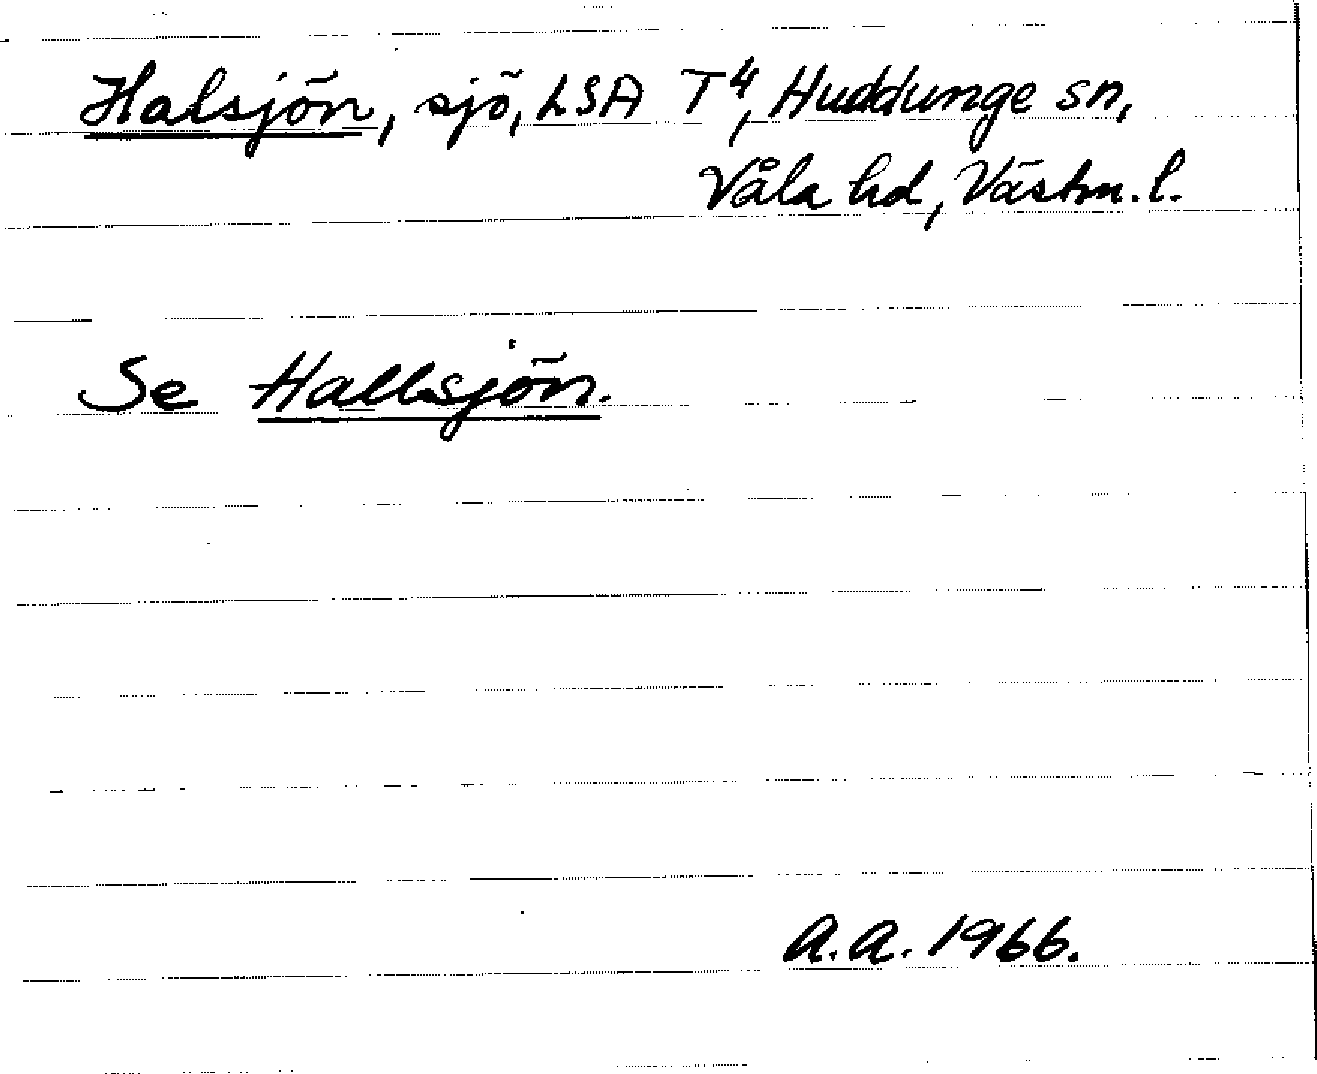 Halsjön, sjö, LSA T⁴, Huddunge sn,
Våla hd, Västm. l.
Se Hallsjön.
A.A. 1966.